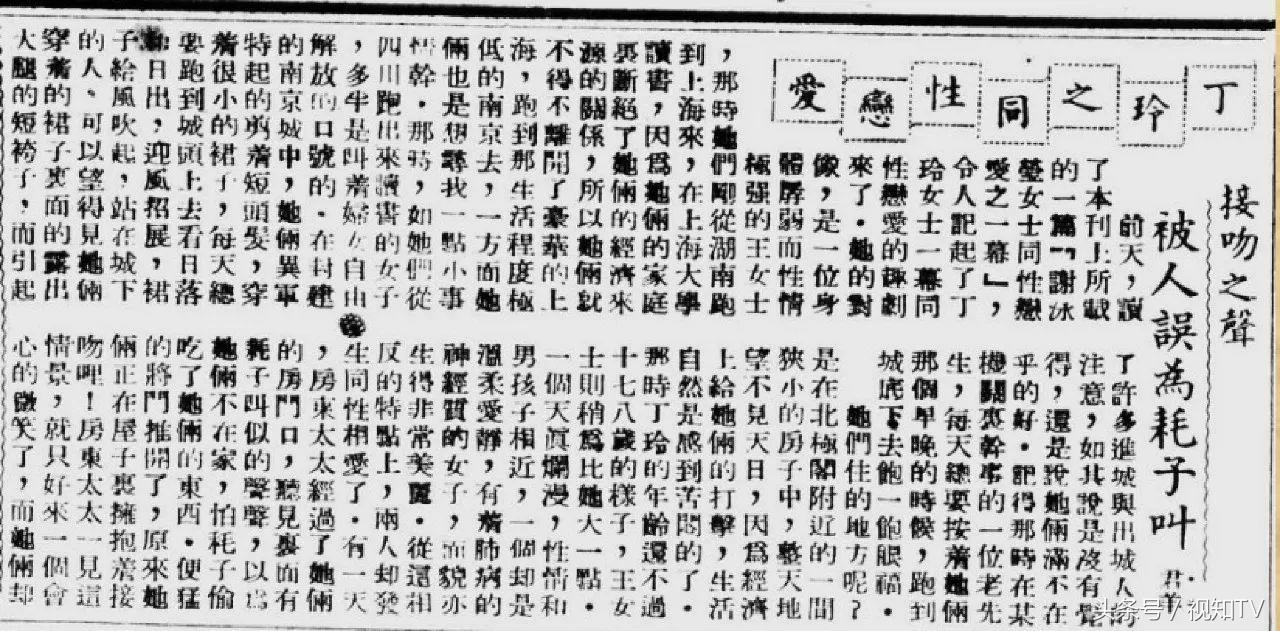 丁玲之同性戀愛
接吻之聲
被人誤為耗子叫
前天，讀
了本刊上所載
的一篇「謝冰
瑩女士同性戀
愛之一幕」，
令人記起了丁
玲女士一幕同
性戀愛的趣劇
來了．她的對
像，是一位身
體孱弱而性情
極强的王女士
，那時她們剛從湖南跑
到上海來，在上海大學
讀書，因爲她倆的家庭
裏斷絕了她倆的經濟來
源的關係，所以她倆就
不得不離開了豪華的上
海，跑到那生活程度極
低的南京去，一方面她
倆也是想尋找一點小事
情幹．那時，如她們從
四川跑出來讀書的女子
，多半是叫着婦女自由
解放的口號的．在封建
的南京城中，她倆異軍
特起的剪着短頭髮，穿
着很小的裙子，每天總
要跑到城頭上去看日落
和日出，迎風招展，裙
子給風吹起，站在城下
的人、可以望得見她倆
穿着的裙子裏面的露出
大腿的短袴子，而引起
了許多進城與出城人的
注意，如其說是沒有覺
得，還是說她倆滿不在
乎的好．記得那時在某
機關裏幹事的一位老先
生，每天總要按着她倆
那個早晚的時候，跑到
城底下去飽一飽眼福．
她們住的地方呢？
是在北極閣附近的一間
狹小的房子中，整天地
望不見天日，因爲經濟
上給她倆的打擊，生活
自然是感到苦悶的了．
那時丁玲的年齡還不過
十七八歲的樣子，王女
士則稍爲比她大一點．
一個天眞爛漫，性情和
男孩子相近，一個却是
溫柔愛靜，有着肺病的
神經質的女子，而貌亦
生得非常美麗．從這相
反的特點上，兩人却發
生同性相愛了．有一天
，房東太太經過了她倆
的房門口，聽見裏面有
耗子叫似的聲聲，以爲
她倆不在家，怕耗子偷
吃了她倆的東西．便猛
的將門推開了，原來她
倆正在屋子裏擁抱着接
吻哩！房東太太一見這
情景，就只好來一個會
心的微笑了，而她倆却
头条号 / 视知TV